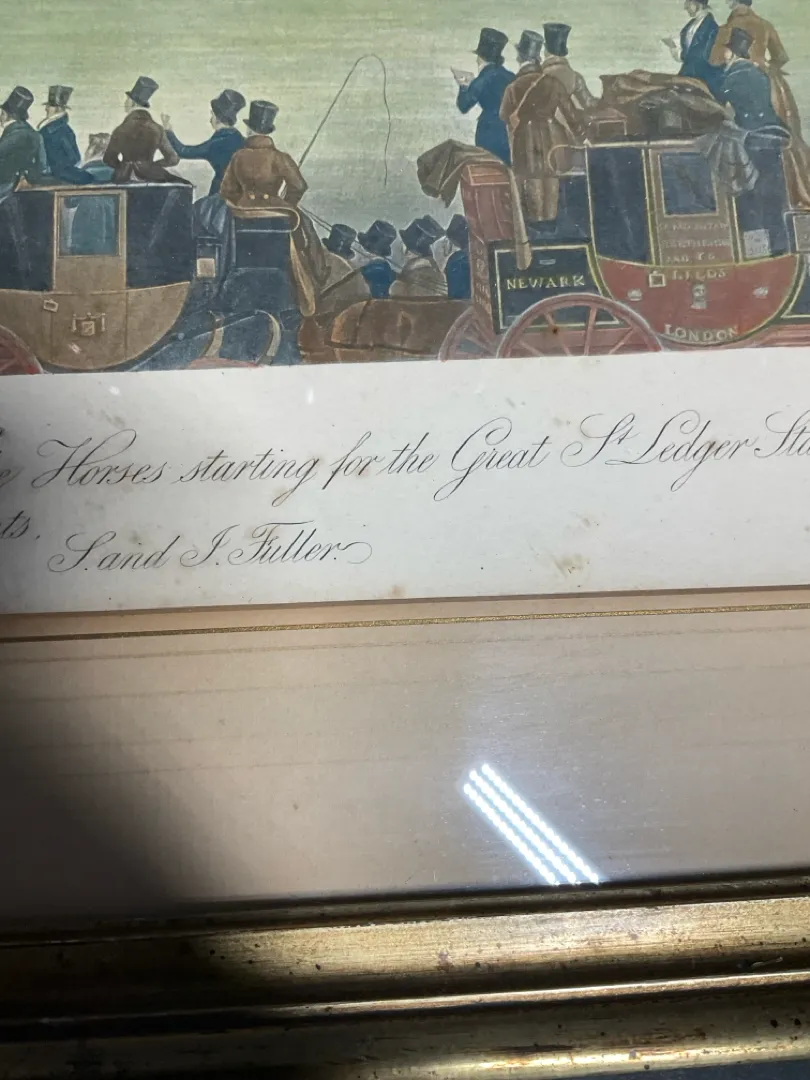 NEWARK
LEEDS
LONDON
Horses starting for the Great St Ledger
S. and J. Fuller.